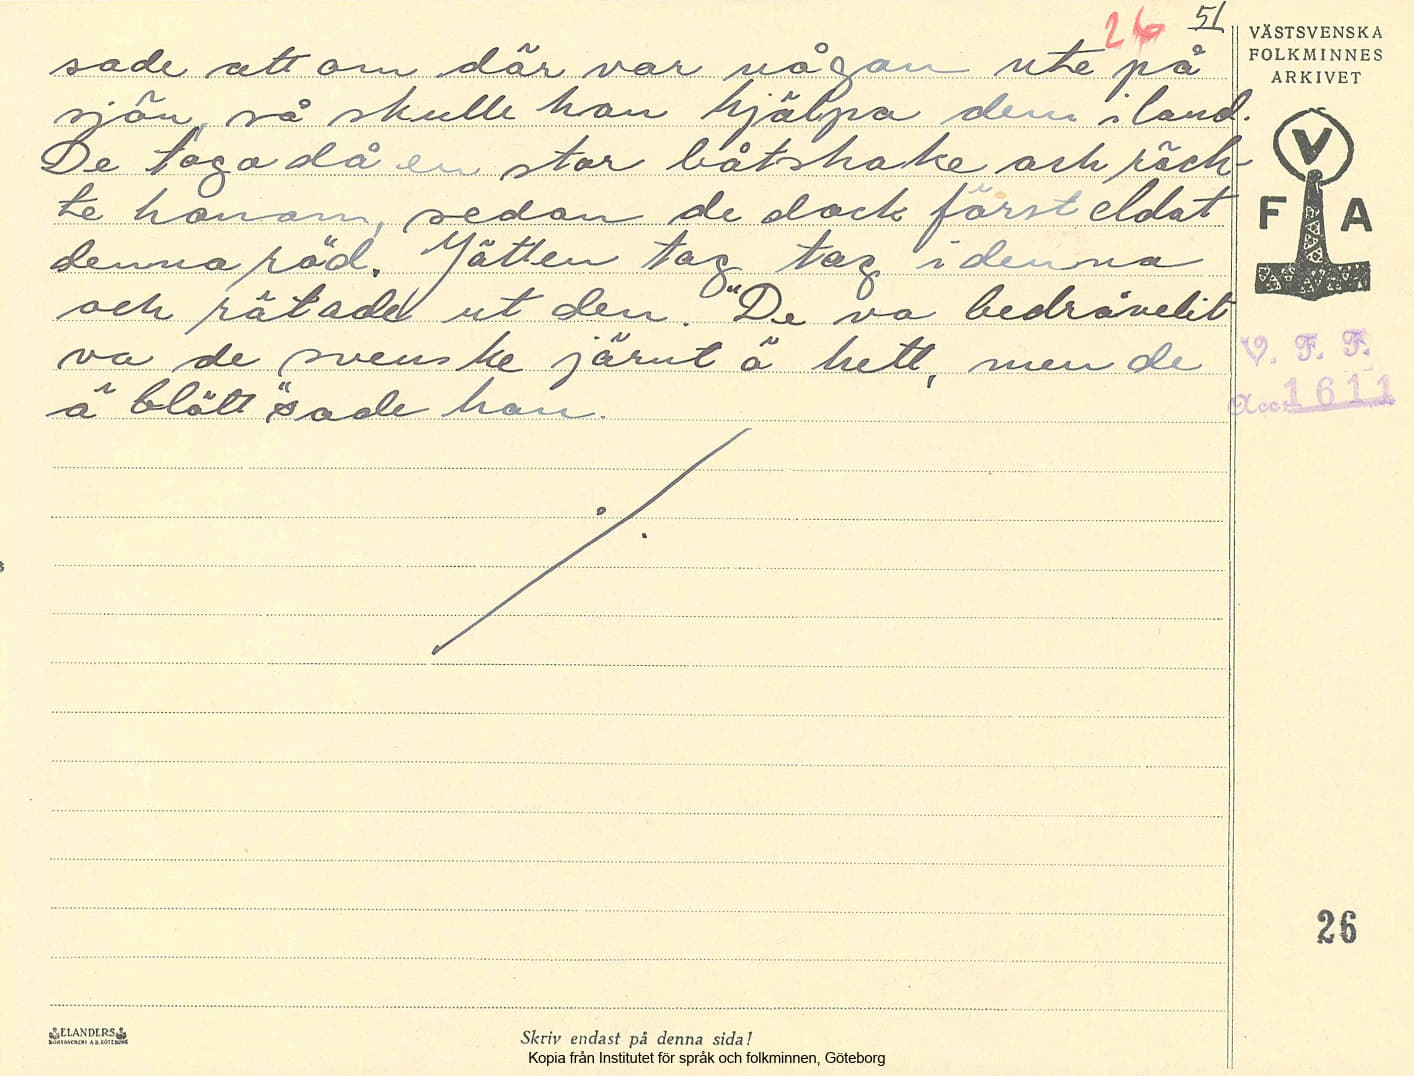 26 51
sade att om där var någon ute på
sjön, så skulle han hjälpa dem i land.
De togo då en stor båtshake och räck-
te honom, sedan de dock först eldat
denna röd. Jätten tog tag i denna
och rätade ut den. "De va bedrövelit
va de svenske järnt ä hett, men de
ä blött" sade han.
VÄSTSVENSKA
FOLKMINNES
ARKIVET
V
F A
V. F. F.
Acc. 1611
26
ELANDERS
Skriv endast på denna sida!
Kopia från Institutet för språk och folkminnen, Göteborg